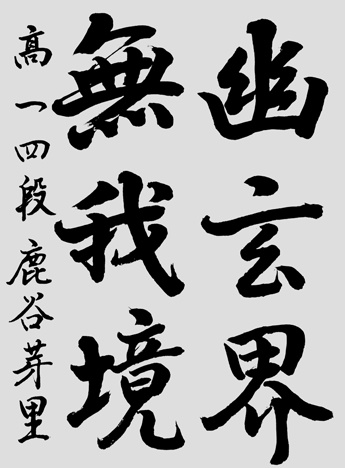 幽玄界
無我境
高一四段鹿谷芽里